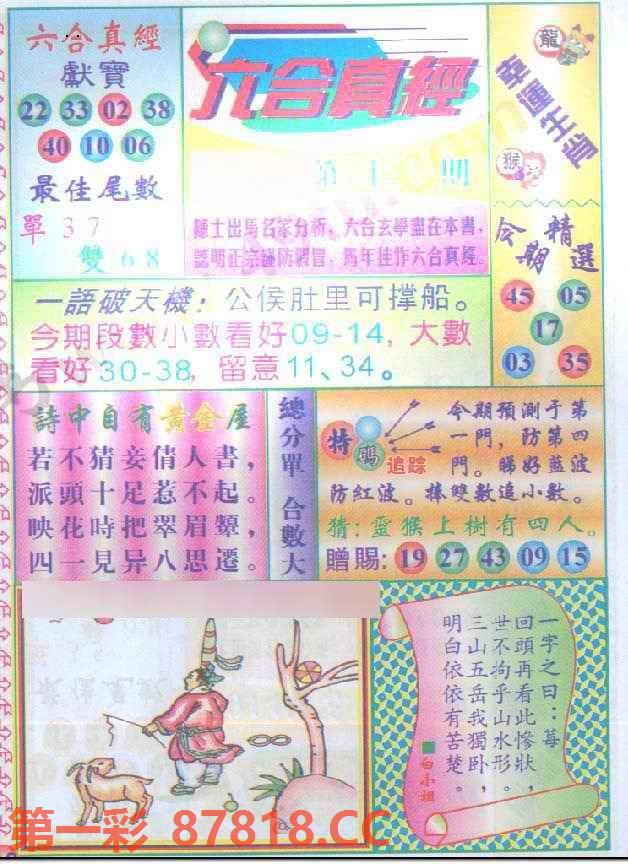 六合真經
獻寶
22 33 02 38
40 10 06
最佳尾數
單 3 7
雙 6 8
六合真經
第十 期
名家分析，六合玄學盡在本書，
佳作六合真經。
龍
幸運生肖
猴
今期精選
45 05
17
03 35
一語破天機：公侯肚里可撐船。
今期段數小數看好09-14，大數
看好30-38，留意11、34。
詩中自有黃金屋
若不猜妾倩人書，
派頭十足惹不起。
映花時把翠眉顰，
四一見异八思遷。
總分單 合數大
特碼追踪
今期預測于第
一門，防第四
門。睇好藍波
防紅波。捧雙數追小數。
猜：靈猴上樹有四人。
贈賜：19 27 43 09 15
一字之曰：莓
回頭再看此慘狀，
世不拘乎山水形。
三山五岳我獨卧，
明白依依有苦楚。
白小姐
第一彩 87818.CC